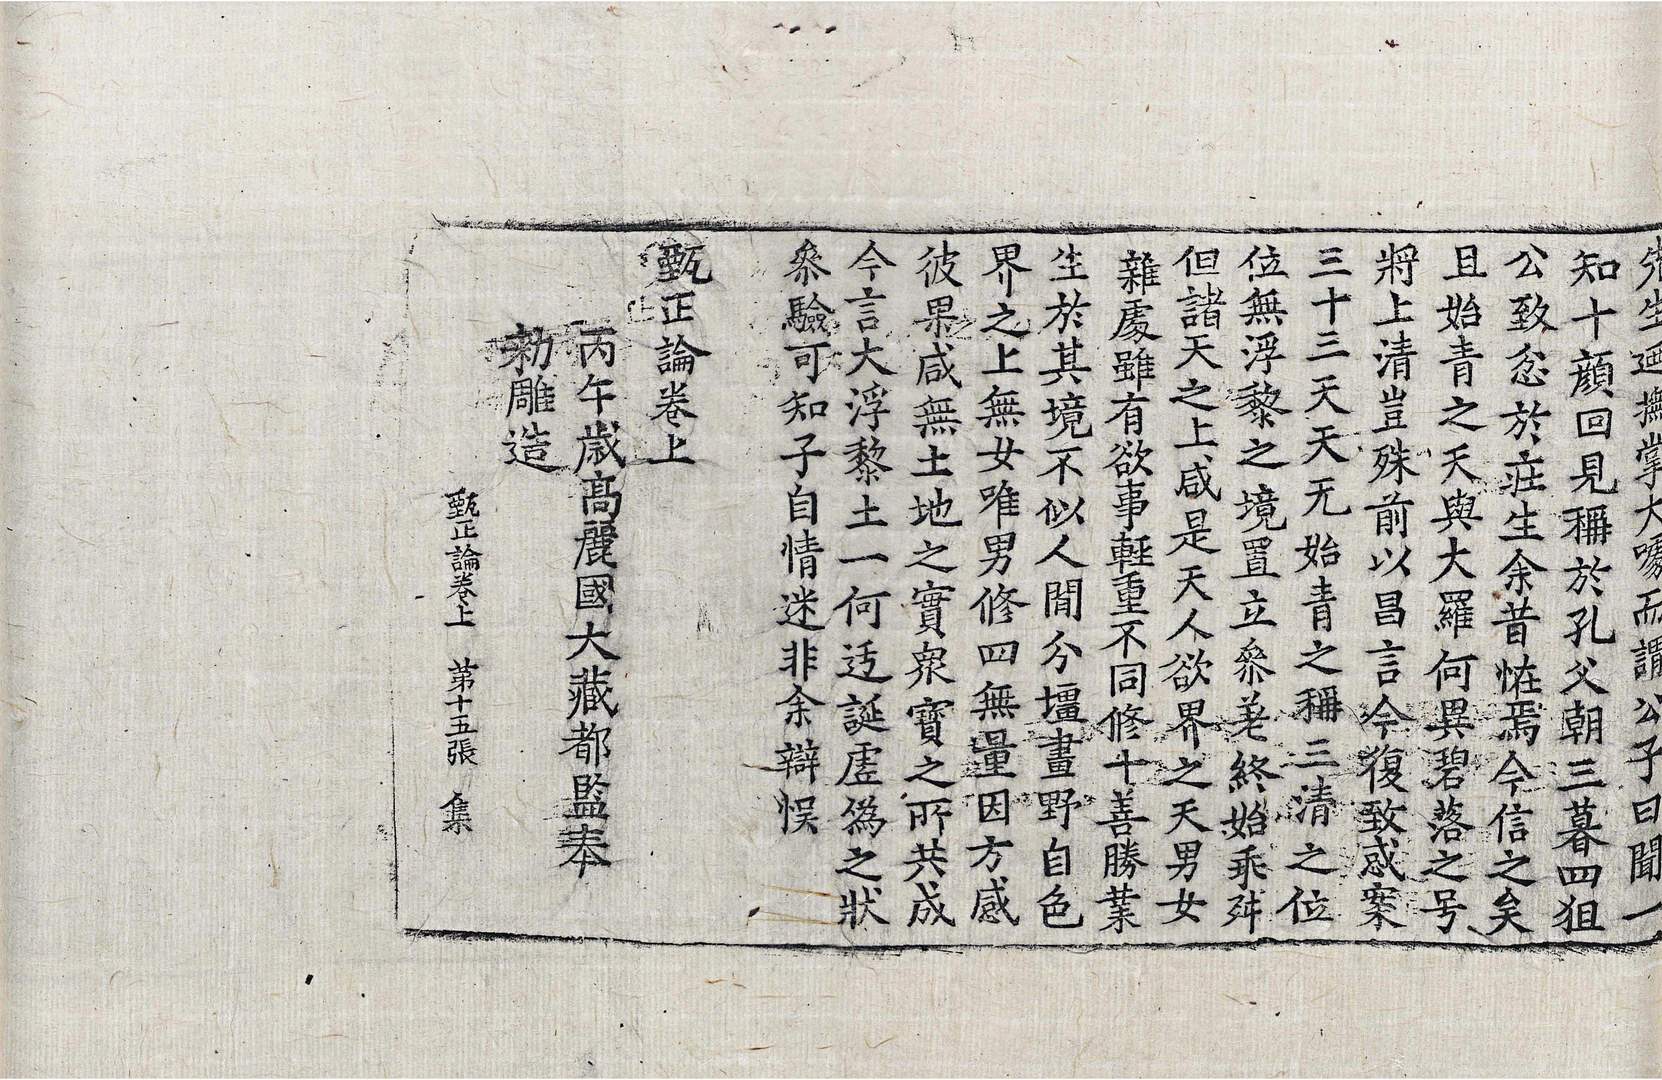 先生迺撫掌大噱而謂公子曰聞一
知十顔回見稱於孔父朝三暮四狙
公致忿於莊生余昔恠焉今信之矣
且始青之天與大羅何異碧落之号
將上清豈殊前以昌言今復致惑案
三十三天天无始青之稱三清之位
位無浮黎之境置立叅差終始乖舛
但諸天之上咸是天人欲界之天男女
雜處雖有欲事輕重不同修十善勝業
生於其境不似人間分壃畫野自色
界之上無女唯男修四無量因方感
彼果咸無土地之實衆寶之所共成
今言大浮黎土一何迃誕虛僞之狀
叅驗可知子自情迷非余辯悮
甄正論卷上
丙午歲高麗國大藏都監奉
勑雕造
甄正論卷上 第十五張 集